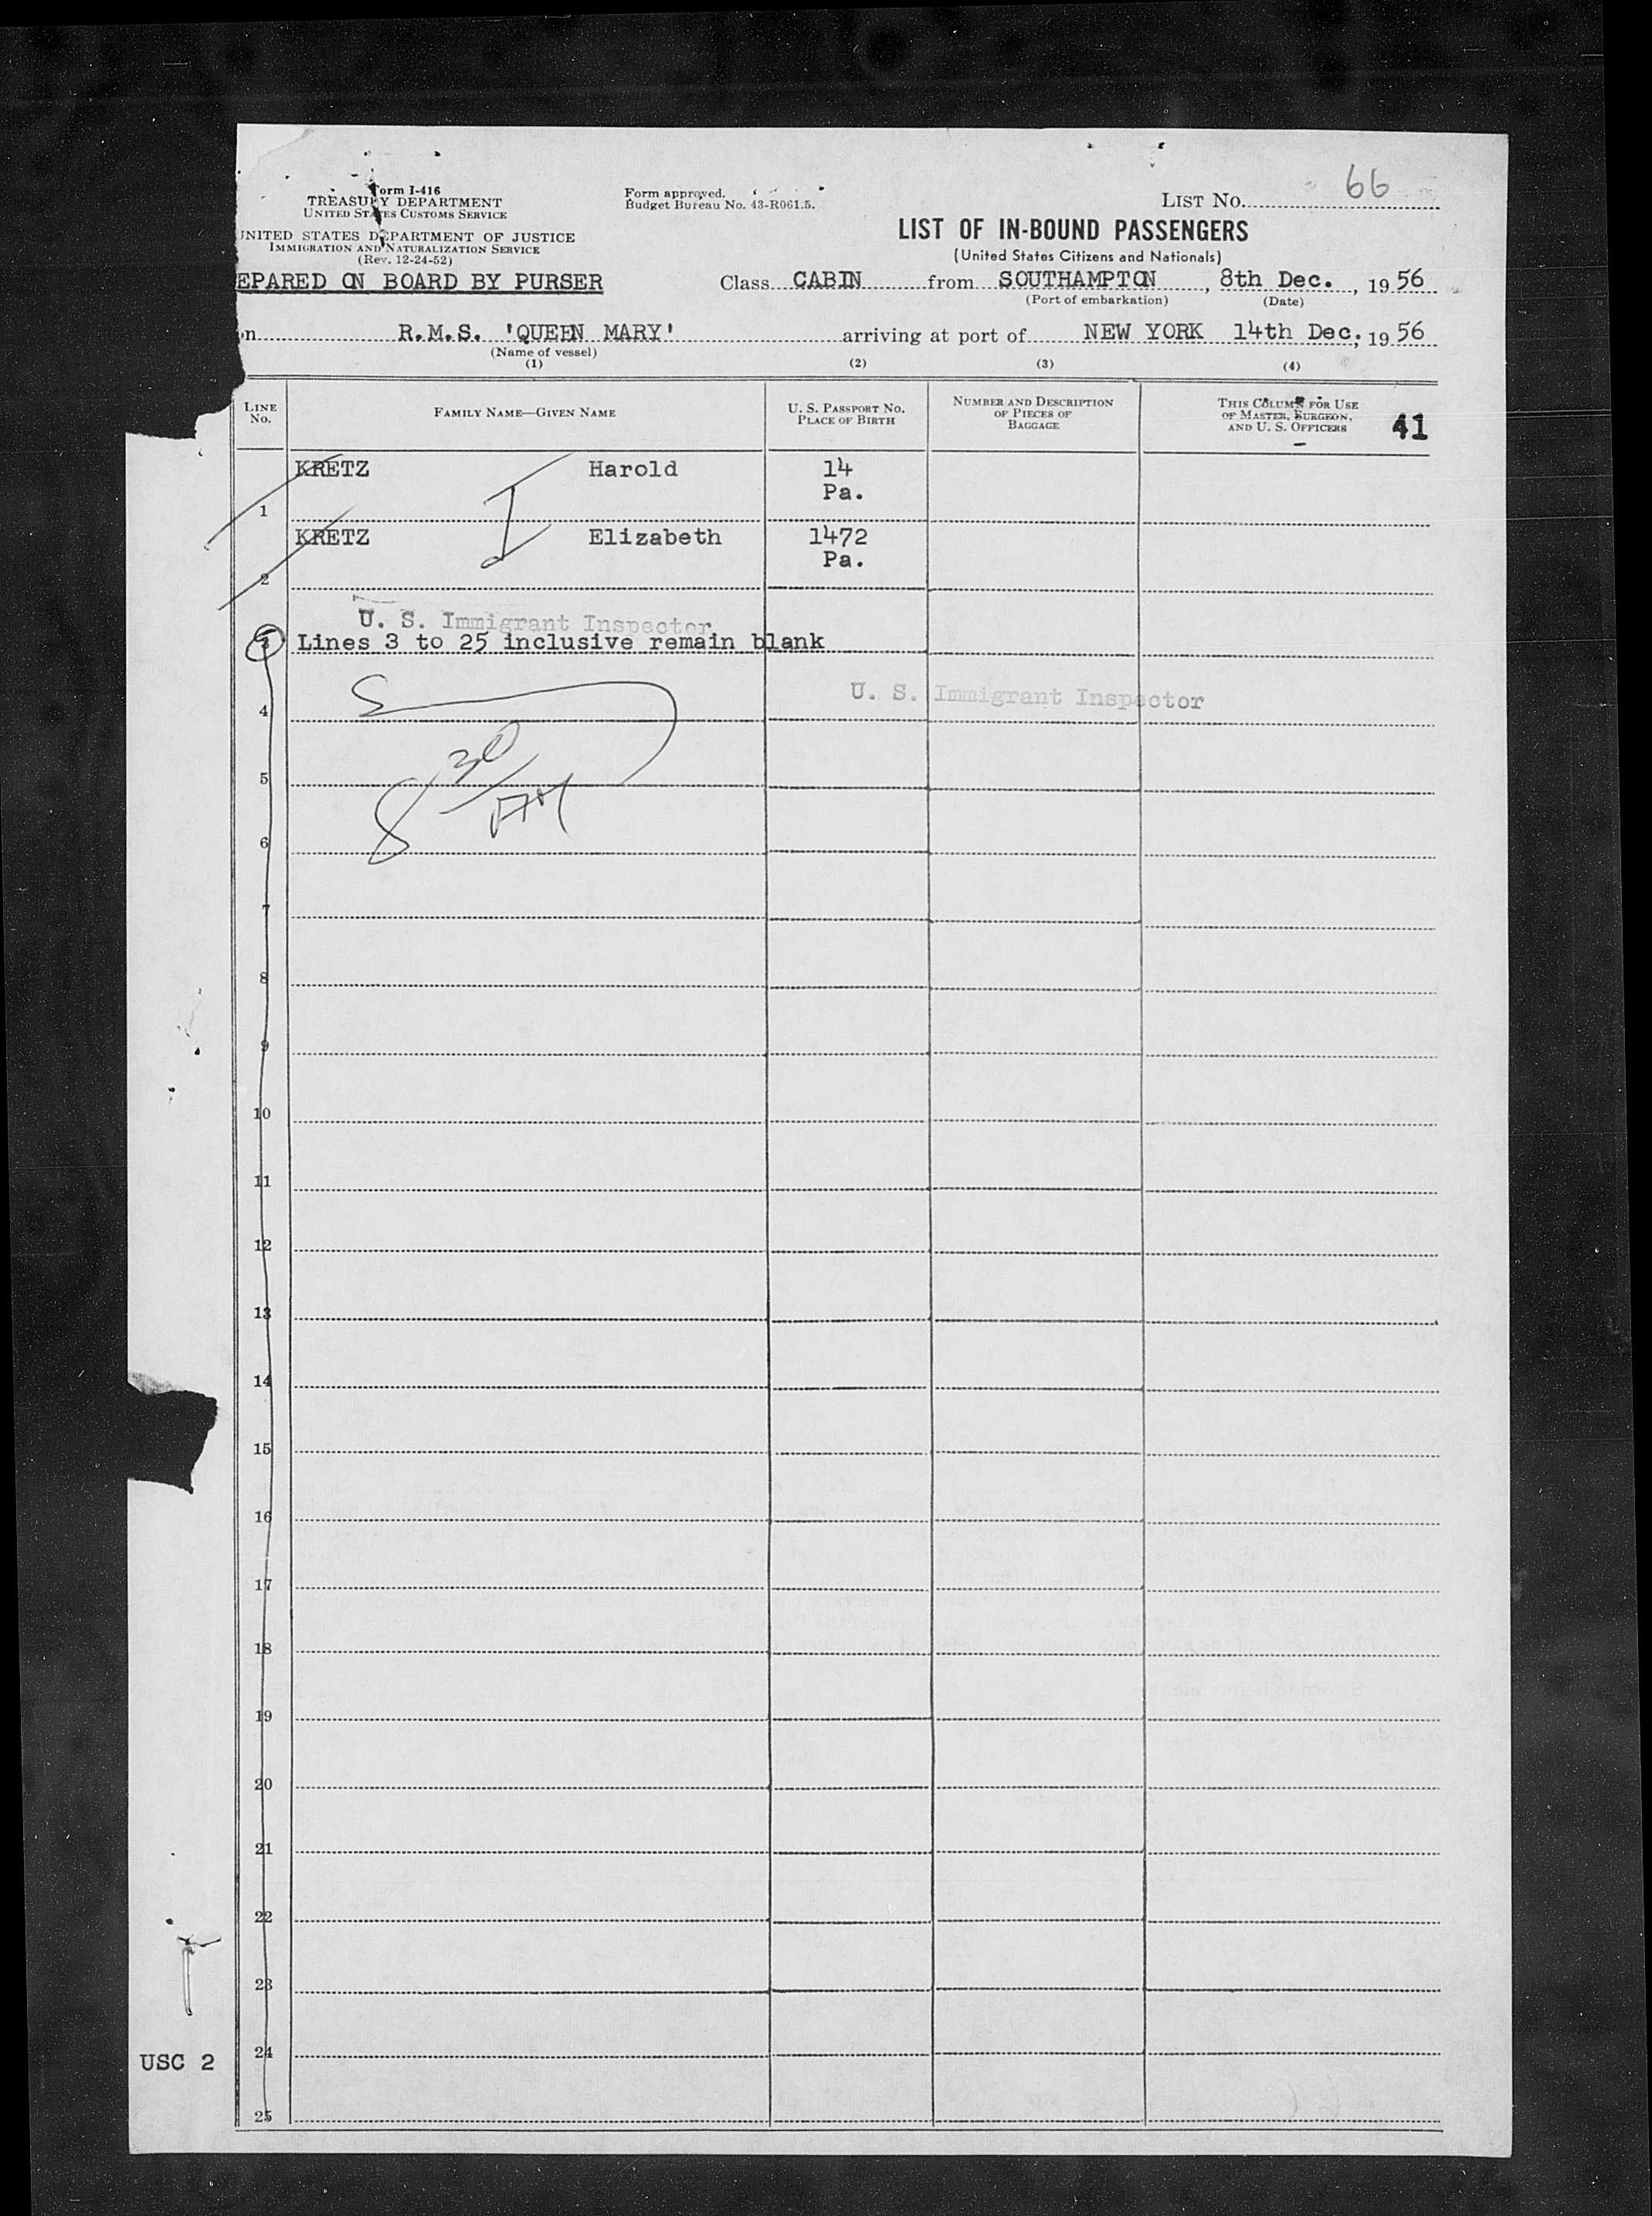 Form I-416
TREASURY DEPARTMENT
UNITED STATES CUSTOMS SERVICE
UNITED STATES DEPARTMENT OF JUSTICE
IMMIGRATION AND NATURALIZATION SERVICE
(Rev. 12-24-52)
Form approved.
Budget Bureau No. 43-R061.5.
LIST No. 66
LIST OF IN-BOUND PASSENGERS
(United States Citizens and Nationals)
EPARED ON BOARD BY PURSER
Class CABIN from SOUTHAMPTON, 8th Dec., 1956
(Port of embarkation) (Date)
on R.M.S. 'QUEEN MARY' arriving at port of NEW YORK 14th Dec., 1956
(Name of vessel)
(1) (2) (3) (4)
LINE No.
FAMILY NAME—GIVEN NAME
U. S. PASSPORT NO.
PLACE OF BIRTH
NUMBER AND DESCRIPTION
OF PIECES OF
BAGGAGE
THIS COLUMN FOR USE
OF MASTER, SURGEON,
AND U. S. OFFICERS
41
KRETZ Harold 14
Pa.
1
KRETZ Elizabeth 1472
Pa.
2
U. S. Immigrant Inspector
3 Lines 3 to 25 inclusive remain blank
U. S. Immigrant Inspector
4
5
8 30 AM
6
7
8
9
10
11
12
13
14
15
16
17
18
19
20
21
22
23
24
USC 2
25